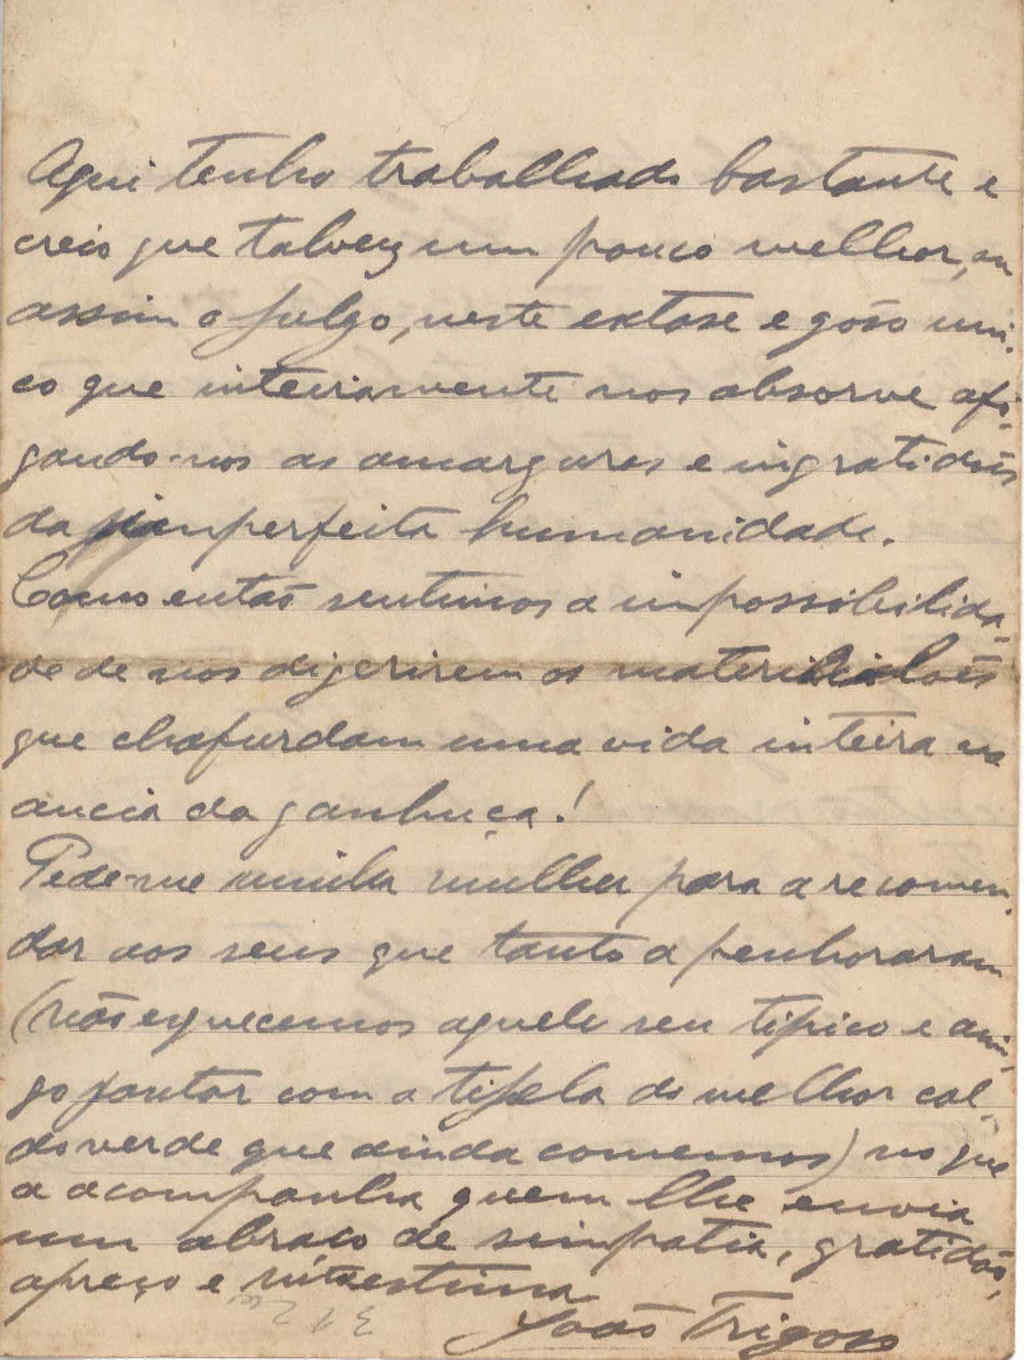 Aqui tenho trabalhado bastante e
creio que talvez um pouco melhor, eu
assim o julgo, neste extase e gôso uni-
co que inteiramente nos absorve afo-
gando-nos as amarguras e ingratidões
da imperfeita humanidade.
Como então sentimos a impossibilida-
de de nos digerirem os materialões
que chafurdam uma vida inteira na
ancia da ganhuça!
Pede-me minha mulher para a recomen-
dar aos seus que tanto a penhoraram
(não esquecemos aquele seu tipico e ami-
go jantar com a tijela do melhor cal-
do verde que ainda comemos) no que
a acompanha quem lhe envia
um abraço de simpatia, gratidão,
apreço e muita estima
João Trigoso